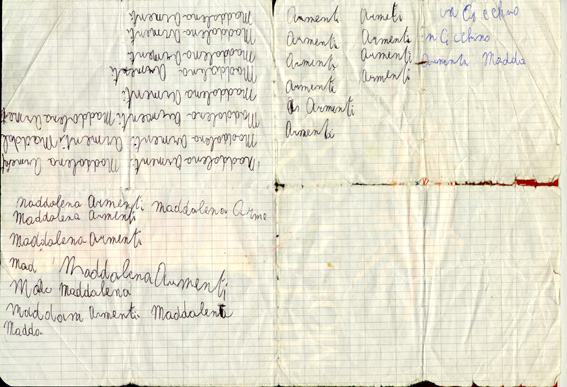 Armenti Armeti
Armenti Armenti
Armenti Armenti
Armenti Armenti
Ar Armenti
Armenti
in Cicchino
Armenti Madda
Maddalena Armenti
Maddalena Armenti
Maddalena Armenti
Maddalena Armenti
Maddalena Armenti
Maddalena Armenti Maddalena Armeti
Maddalena Armenti Maddal
Maddalena Armenti Maddalena Armenti
Maddalena Armenti Maddalena Arme
Maddalena Armenti
Maddalena Armenti
Mad Maddalena Armenti
Maddalena
Armenti Maddalena
Madda